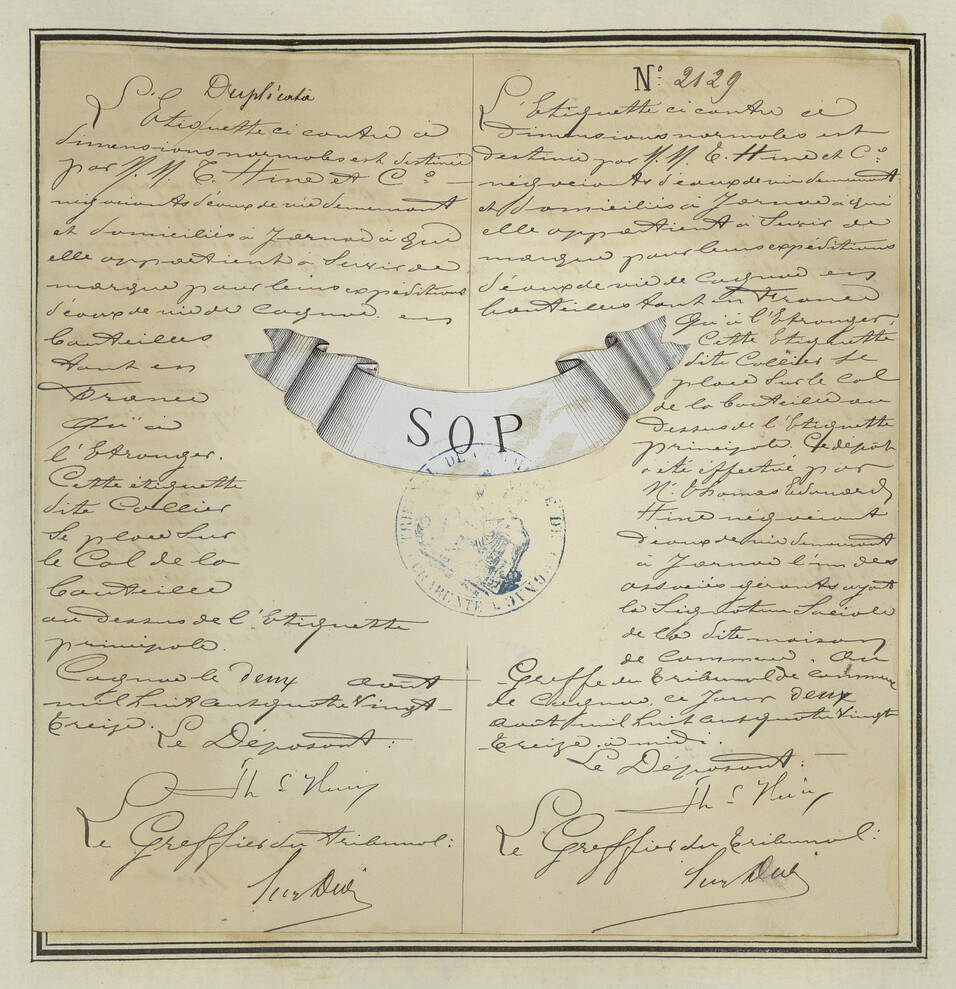 Duplicata
L'Etiquette ci contre à
dimensions normales est destinée
par M. M. T. Hine et Cº
négociants d'eaux de vie demeurant
et domiciliés à Jarnac à qui
elle appartient à servir de
marque pour leurs expéditions
d'eaux de vie de Cognac en
bouteilles
tant en
France
qu'à
l'Etranger.
Cette étiquette
dite Collier
se place sur
le Col de la
bouteille
au dessus de l'Etiquette
principale.
Cognac le deux août
mil huit cent quatre vingt
treize.
Le Déposant :
Th E Hine
Le Greffier du tribunal :
SOP
TRIBUNAL DE COMMERCE DE COGNAC
CHARENTE
Nº 2129
L'Etiquette ci contre de
dimensions normales est
destinée par M. M. T. Hine et Cº
négociants d'eaux de vie demeurant
et domiciliés à Jarnac à qui
elle appartient à servir de
marque pour leurs expéditions
d'eaux de vie de Cognac en
bouteilles tant en France
qu'à l'Etranger.
Cette Etiquette
dite Collier se
place sur le col
de la bouteille au
dessus de l'Etiquette
principale. Ce dépôt
a été effectué par
M. Thomas Edouard
Hine négociant
d'eaux de vie demeurant
à Jarnac l'un des
associés gérants ayant
la Signature Sociale
de la dite maison
de commerce. Au
Greffe du Tribunal de commerce
de Cognac, ce jour deux
août mil huit cent quatre vingt
treize à midi.
Le Déposant :
Th E Hine
Le Greffier du Tribunal :